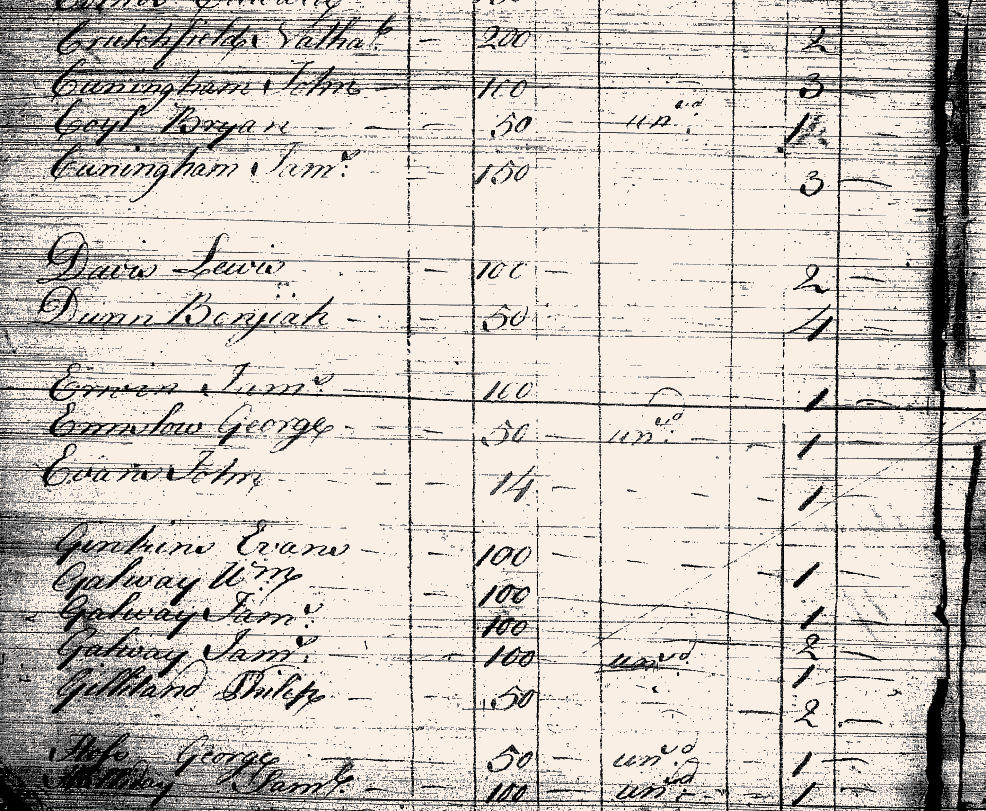 Crutchfield Natha.l — 200 2
Cuningham John — 100 3
Coyl Bryan — — 50 un.d 1
Cuningham Jam.s 150 3 —
Davis Lewis — 100 — 2 —
Dunn Benjiah — — 50 4 —
Erwin Jam.s — 100 1 —
Emslow George — 50 — un.d — 1 —
Evans John — — 14 — 1 —
Genkins Evans — — 100 — 1 —
Galway Wm — 100 1 —
Galway Jam.s — 100 2 —
Galway Jam.s 100 — un.d 1 —
Gilliland Philip — — 50 — 2 —
George — — 50 — un.d 1 —
Sam.l — 100 — un.d — 1 —